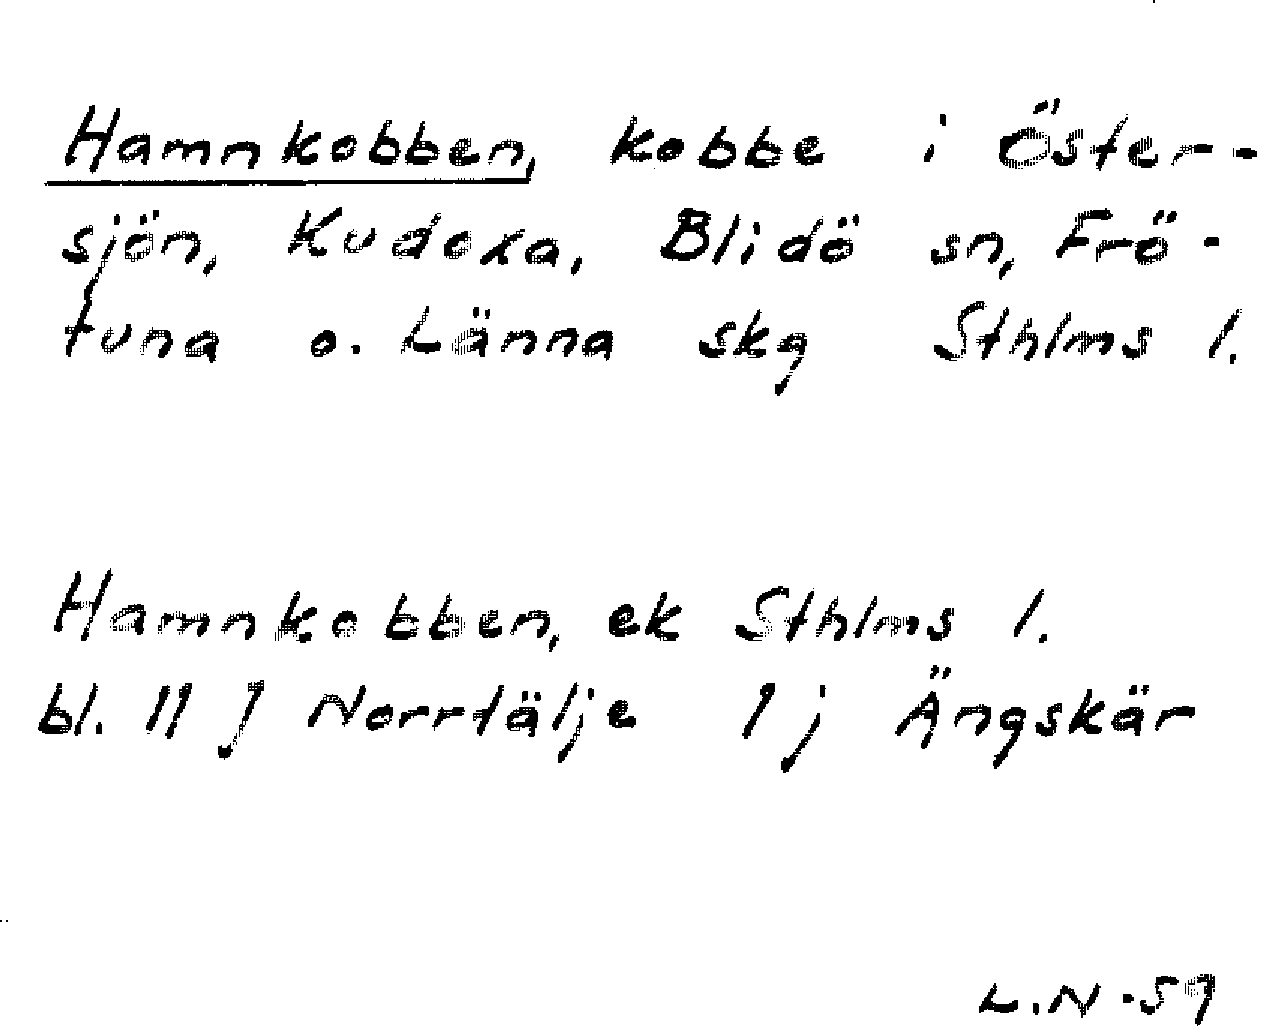 Hamnkobben, kobbe i Öster-
sjön, Kudoxa, Blidö sn, Frö-
tuna o. Länna skg Sthlms l.
Hamnkobben, ek Sthlms l.
bl. 11 J Norrtälje 1 j Ängskär
L.N -59